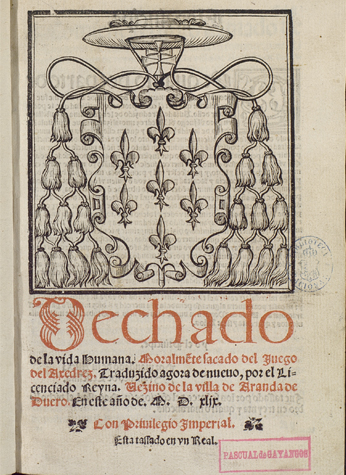 Dechado
de la vida Humana. Moralmẽte sacado del Juego
del Axedrez. Traduzido agora de nueuo, por el Li-
cenciado Reyna. Vezino de la villa de Aranda de
Duero. En este año de. M. D. xlix.
Con Priuilegio Imperial.
Esta tassado en vn Real.
PASCUAL de GAYANGOS